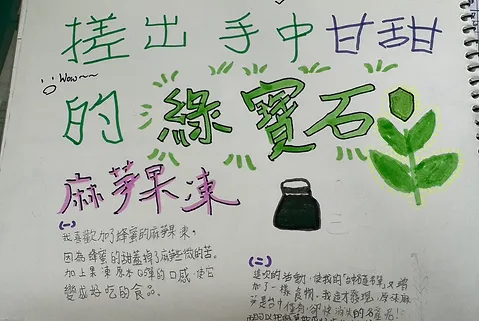 搓出手中甘甜
Wow~~
的綠寶石
麻芛果凍
(一)
我喜歡加了蜂蜜的麻芛果凍,
因為蜂蜜的甜蓋掉了麻芛微微的苦。
加上果凍原本Q彈的口感,使它
變成好吃的食品。
(二)
這次的活動,使我的
加了一樣食物,我這才發現,原來麻
芛是台中僅有,卻快消失的名產呢!